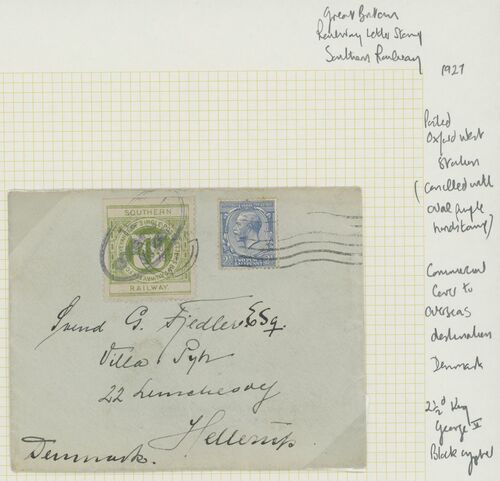 Great Britain
Railway Letter Stamp
Southern Railway
1927
Posted
Oxford West
Station
(Cancelled with
oval purple
handstamp)
Commercial
Cover to
overseas
destination
Denmark
2½d King
George V
Block cypher
SOUTHERN
RAILWAY
Svend G. Fiedler Esq.
Villa Pyt
22
Hellerup
Denmark.